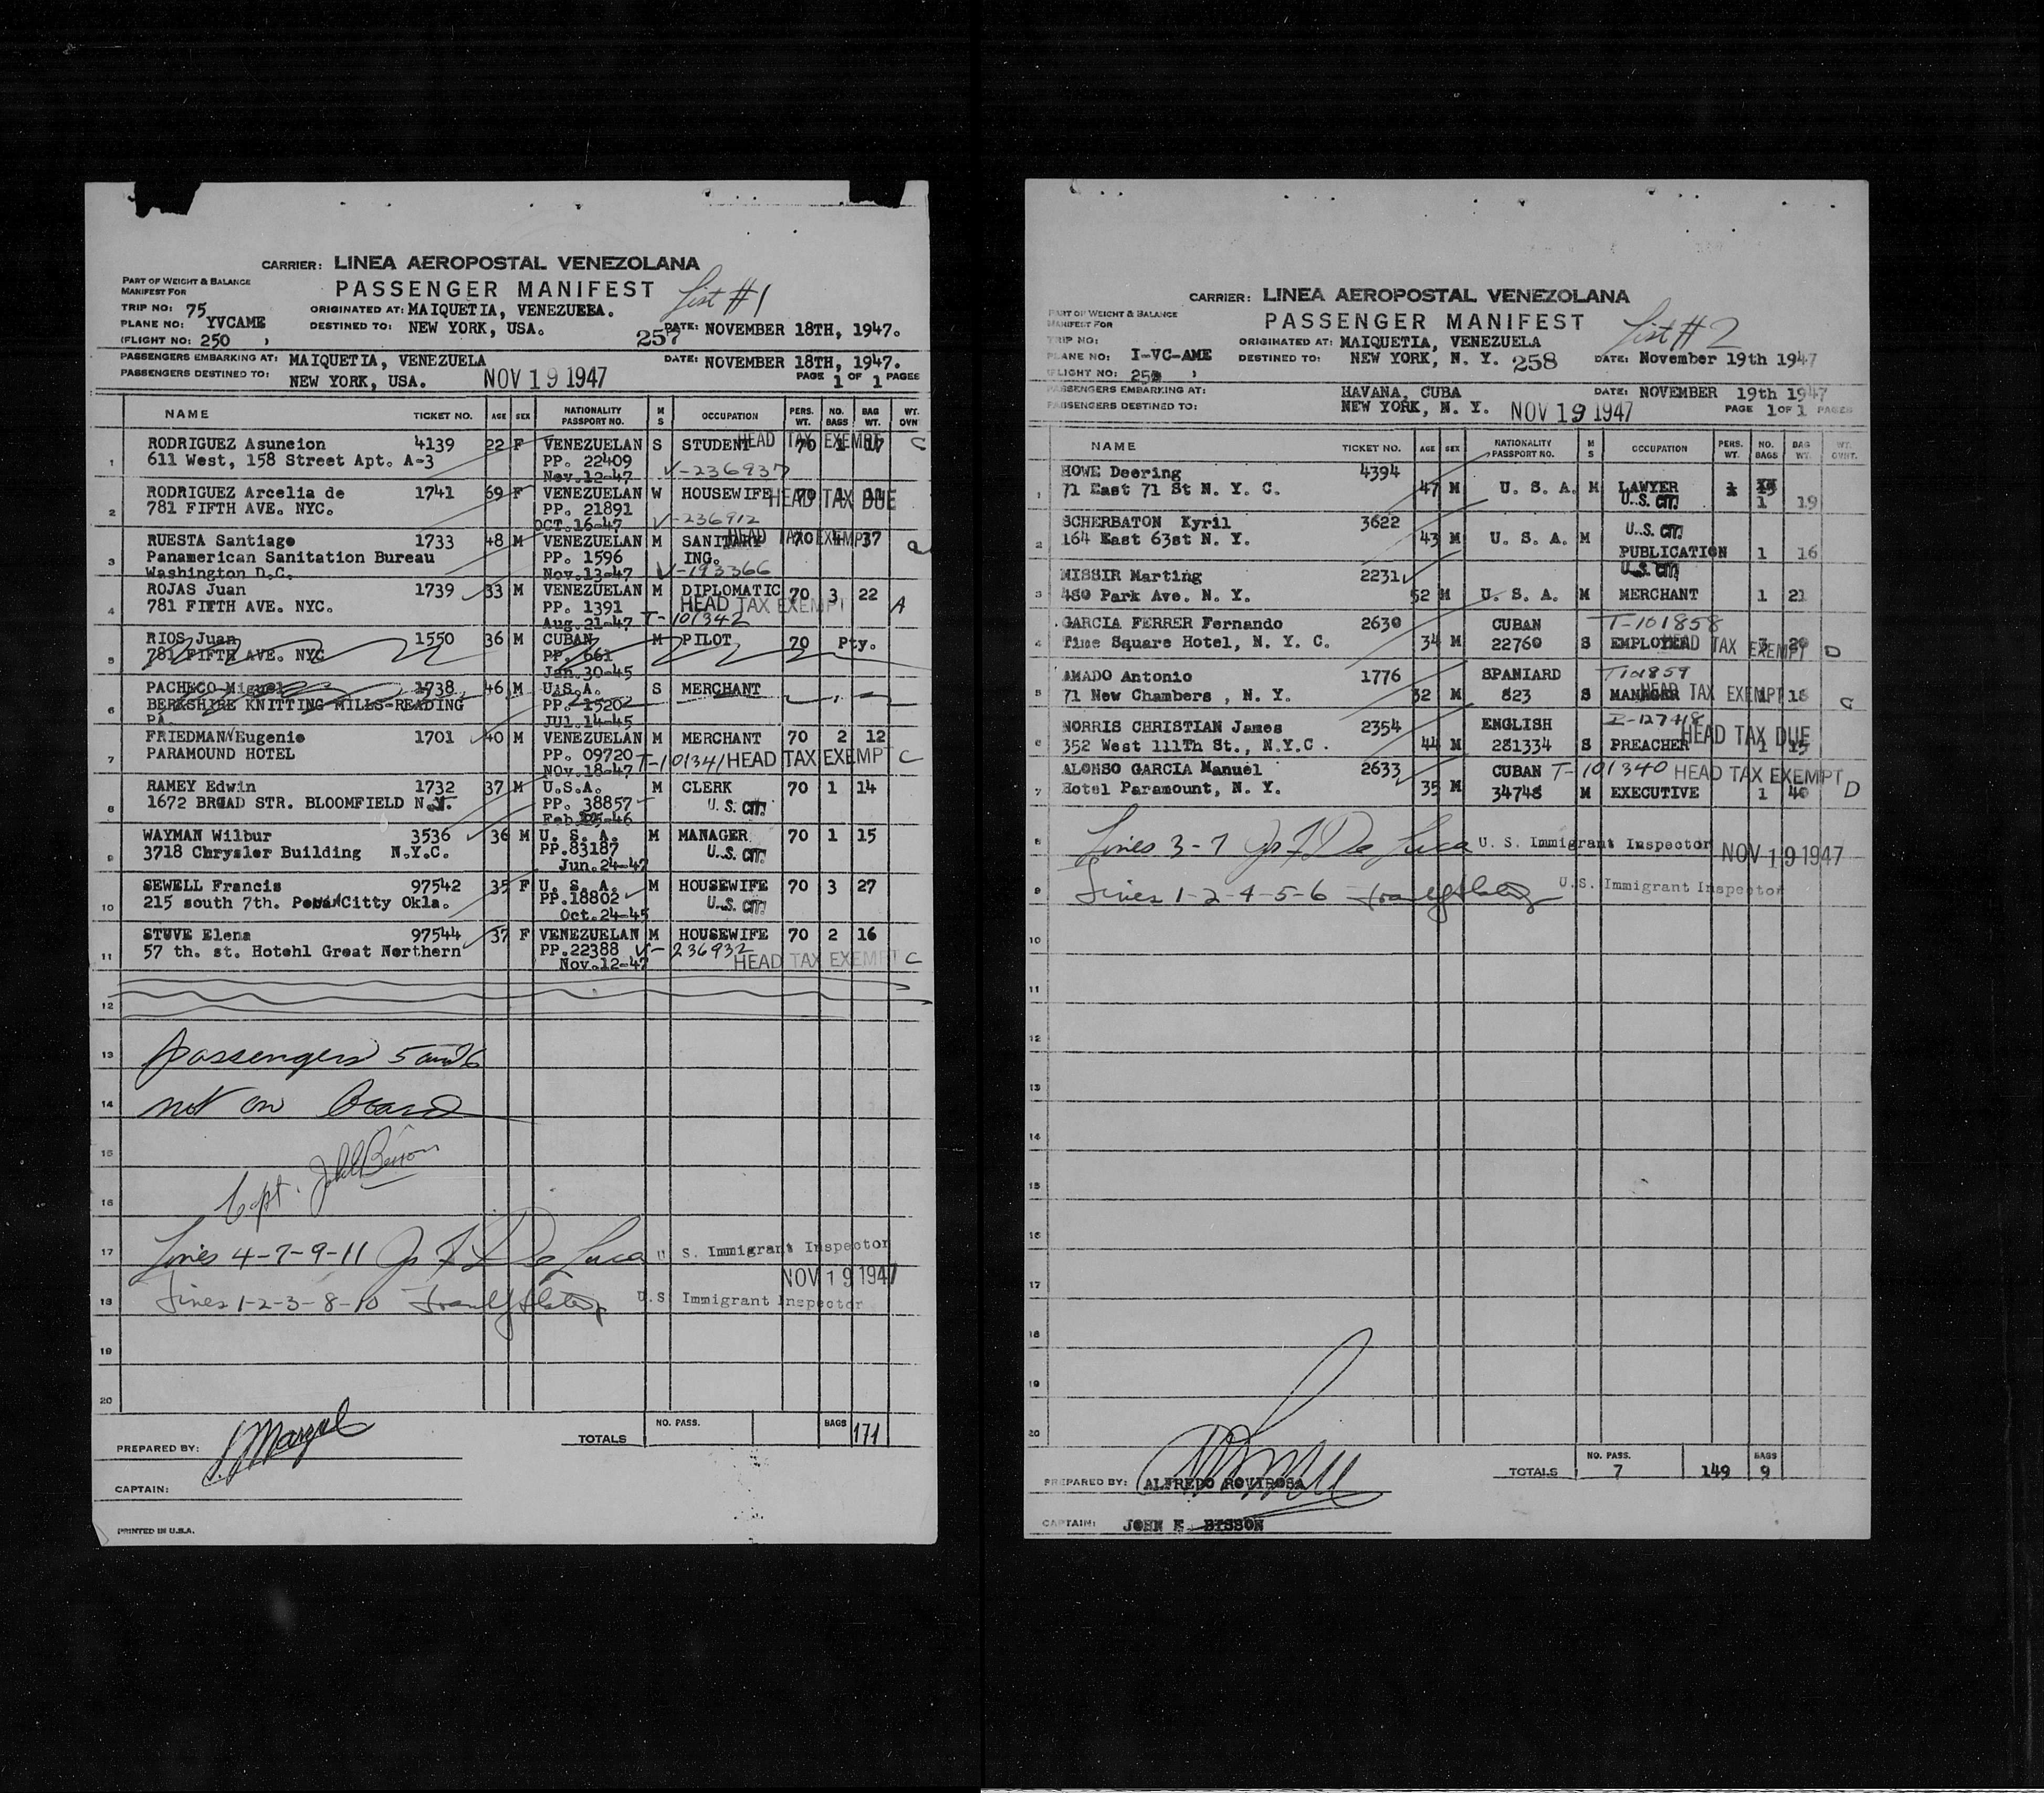 CARRIER: LINEA AEROPOSTAL VENEZOLANA
PART OF WEIGHT & BALANCE
MANIFEST FOR
PASSENGER MANIFEST
List #1
TRIP NO: 75
ORIGINATED AT: MAIQUETIA, VENZUEBA.
PLANE NO: YVCAME
DESTINED TO: NEW YORK, USA.
257
DATE: NOVEMBER 18TH, 1947.
(FLIGHT NO: 250 )
PASSENGERS EMBARKING AT: MAIQUETIA, VENEZUELA
DATE: NOVEMBER 18TH, 1947.
PASSENGERS DESTINED TO: NEW YORK, USA.
NOV 19 1947
PAGE 1 OF 1 PAGES
NAME TICKET NO. AGE SEX NATIONALITY PASSPORT NO. M S OCCUPATION PERS. WT. NO. BAGS BAG WT. WT. OVNT
RODRIGUEZ Asuncion 4139 22 F VENEZUELAN S STUDENT 70 1 17 HEAD TAX EXEMPT C
1 611 West, 158 Street Apt. A-3 PP. 22409
Nov.12-47 V-236937
RODRIGUEZ Arcelia de 1741 69 F VENEZUELAN W HOUSEWIFE 70 1 HEAD TAX DUE
2 781 FIFTH AVE. NYC. PP. 21891
OCT.16-47 V-236912
RUESTA Santiago 1733 48 M VENEZUELAN M SANITARY 70 37 HEAD TAX EXEMPT
3 Panamerican Sanitation Bureau PP. 1596 ING.
Washington D.C. Nov.13-47 V-193366
ROJAS Juan 1739 33 M VENEZUELAN M DIPLOMATIC 70 3 22
4 781 FIFTH AVE. NYC. PP. 1391 HEAD TAX EXEMPT A
Aug.21-47 T-101342
RIOS Juan 1550 36 M CUBAN M PILOT 70 Pty.
5 781 FIFTH AVE. NYC PP. 661
Jan.30-45
PACHECO Miguel 1738 46 M U.S.A. S MERCHANT
6 BERKSHIRE KNITTING MILLS-READING PP. 1520
PA. JUl.14-45
FRIEDMAN Eugenio 1701 40 M VENEZUELAN M MERCHANT 70 2 12
7 PARAMOUND HOTEL PP. 09720
Nov.18-47 T-101341 HEAD TAX EXEMPT C
RAMEY Edwin 1732 37 M U.S.A. M CLERK 70 1 14
8 1672 BROAD STR. BLOOMFIELD N.J. PP. 38857 U.S. CIT.
Feb.25-46
WAYMAN Wilbur 3536 36 M U. S. A. M MANAGER 70 1 15
9 3718 Chrysler Building N.Y.C. PP.83187 U.S. CIT.
Jun.24-47
SEWELL Francis 97542 35 F U. S. A. M HOUSEWIFE 70 3 27
10 215 south 7th. Citty Okla. PP.18802 U.S. CIT.
Oct.24-45
STUVE Elena 97544 37 F VENEZUELAN M HOUSEWIFE 70 2 16
11 57 th. st. Hotehl Great Northern PP.22388 V-236932
Nov.12-47 HEAD TAX EXEMPT C
12
13 passengers 5 and 6
14 not on board
15
16 Capt. John Bisson
17 Lines 4-7-9-11 De Luca U S. Immigrant Inspector
NOV 19 1947
18 Lines 1-2-3-8-10 U.S. Immigrant Inspector
19
20
NO. PASS. BAGS
TOTALS 171
PREPARED BY:
CAPTAIN:
PRINTED IN U.S.A.
CARRIER: LINEA AEROPOSTAL VENEZOLANA
PART OF WEIGHT & BALANCE
MANIFEST FOR
PASSENGER MANIFEST
List #2
TRIP NO:
ORIGINATED AT: MAIQUETIA, VENEZUELA
PLANE NO: I-VC-AME
DESTINED TO: NEW YORK, N. Y. 258
DATE: November 19th 1947
FLIGHT NO: 250 )
PASSENGERS EMBARKING AT: HAVANA, CUBA
DATE: NOVEMBER 19th 1947
PASSENGERS DESTINED TO: NEW YORK, N. Y.
NOV 19 1947
PAGE 1 OF 1 PAGES
NAME TICKET NO. AGE SEX NATIONALITY PASSPORT NO. M S OCCUPATION PERS. WT. NO. BAGS BAG WT. WT. OVNT.
HOWE Deering 4394
1 71 East 71 St N. Y. C. 47 M U. S. A. M LAWYER
U.S. CIT. 1 19
SCHERBATON Kyril 3622 U.S. CIT.
2 164 East 63st N. Y. 43 M U. S. A. M
PUBLICATION 1 16
MISSIR Marting 2231 U.S. CIT.
3 480 Park Ave. N. Y. 52 M U. S. A. M MERCHANT 1 21
GARCIA FERRER Fernando 2630 CUBAN T-101858
4 Time Square Hotel, N. Y. C. 34 M 22760 S EMPLOYEE 3 20 HEAD TAX EXEMPT D
AMADO Antonio 1776 SPANIARD T101859
5 71 New Chambers , N. Y. 32 M 823 S MANAGER 1 18 HEAD TAX EXEMPT C
NORRIS CHRISTIAN James 2354 ENGLISH I-12748
6 352 West 111Th St., N.Y.C . 44 M 281334 S PREACHER 1 15 HEAD TAX DUE
ALONSO GARCIA Manuel 2633 CUBAN T-101340 HEAD TAX EXEMPT
7 Hotel Paramount, N. Y. 35 M 34748 M EXECUTIVE 1 40 D
8 Lines 3-7 De Luca U. S. Immigrant Inspector NOV 19 1947
9 Lines 1-2-4-5-6 U.S. Immigrant Inspector
10
11
12
13
14
15
16
17
18
19
20
NO. PASS. BAGS
TOTALS 7 149 9
PREPARED BY: ALFREDO ROVIROSA
CAPTAIN: JOHN E. BISSON